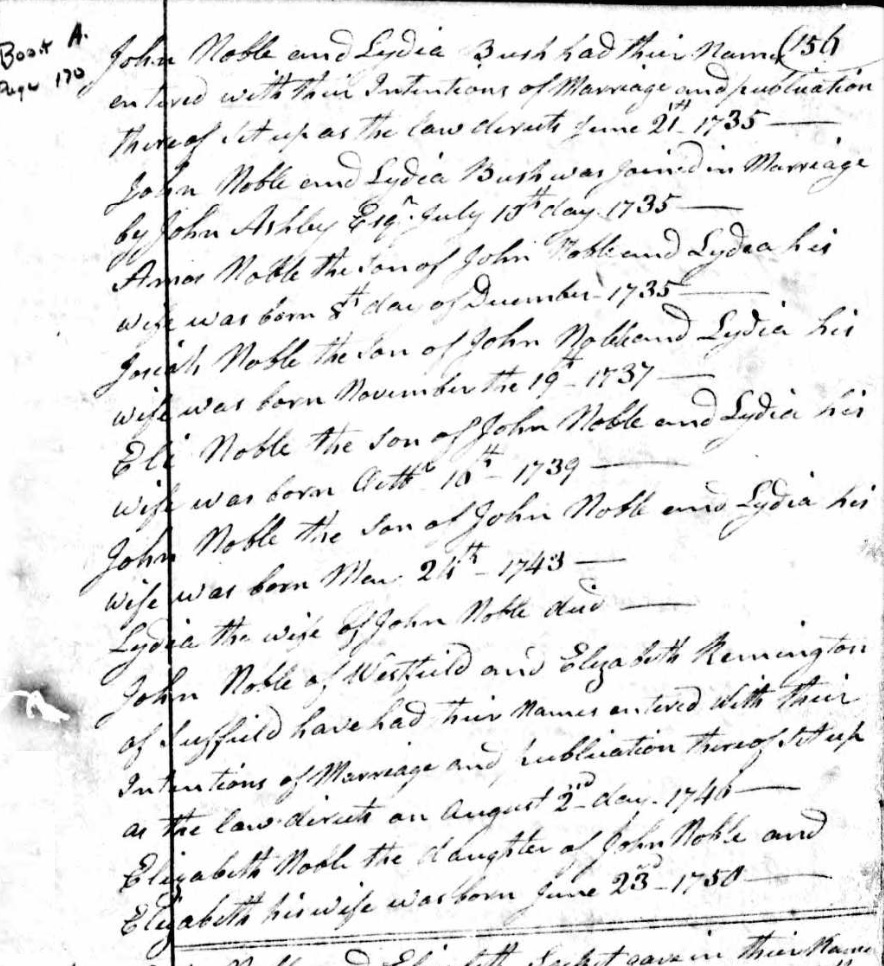 Book A.
Page 170
(156
John Noble and Lydia Bush had their Names
entered with their Intentions of Marriage and publication
thereof set up as the law directs June 21st 1735 —
John Noble and Lydia Bush was Joined in Marriage
by John Ashley Esqr. July day 1735 —
Amos Noble the son of John Noble and Lydia his
wife was born 8th day of December 1735 —
Josiah Noble the son of John Noble and Lydia his
wife was born November the 19th 1737 —
Eli Noble the son of John Noble and Lydia his
wife was born 16th 1739 —
John Noble the son of John Noble and Lydia his
wife was born 1743 —
Lydia the wife of John Noble died —
John Noble of Westfield and Elizabeth Remington
of Suffield have had their Names entered with their
Intentions of Marriage and publication thereof set up
as the law directs on August 2nd day
Elizabeth Noble the daughter of John Noble and
Elizabeth his wife was born June 23d 1750 —
Noble and Elizabeth gave in their Names